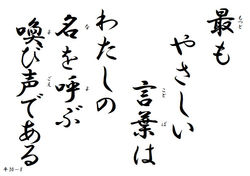 最も
やさしい
言葉は
わたしの
名を呼ぶ
喚び声である